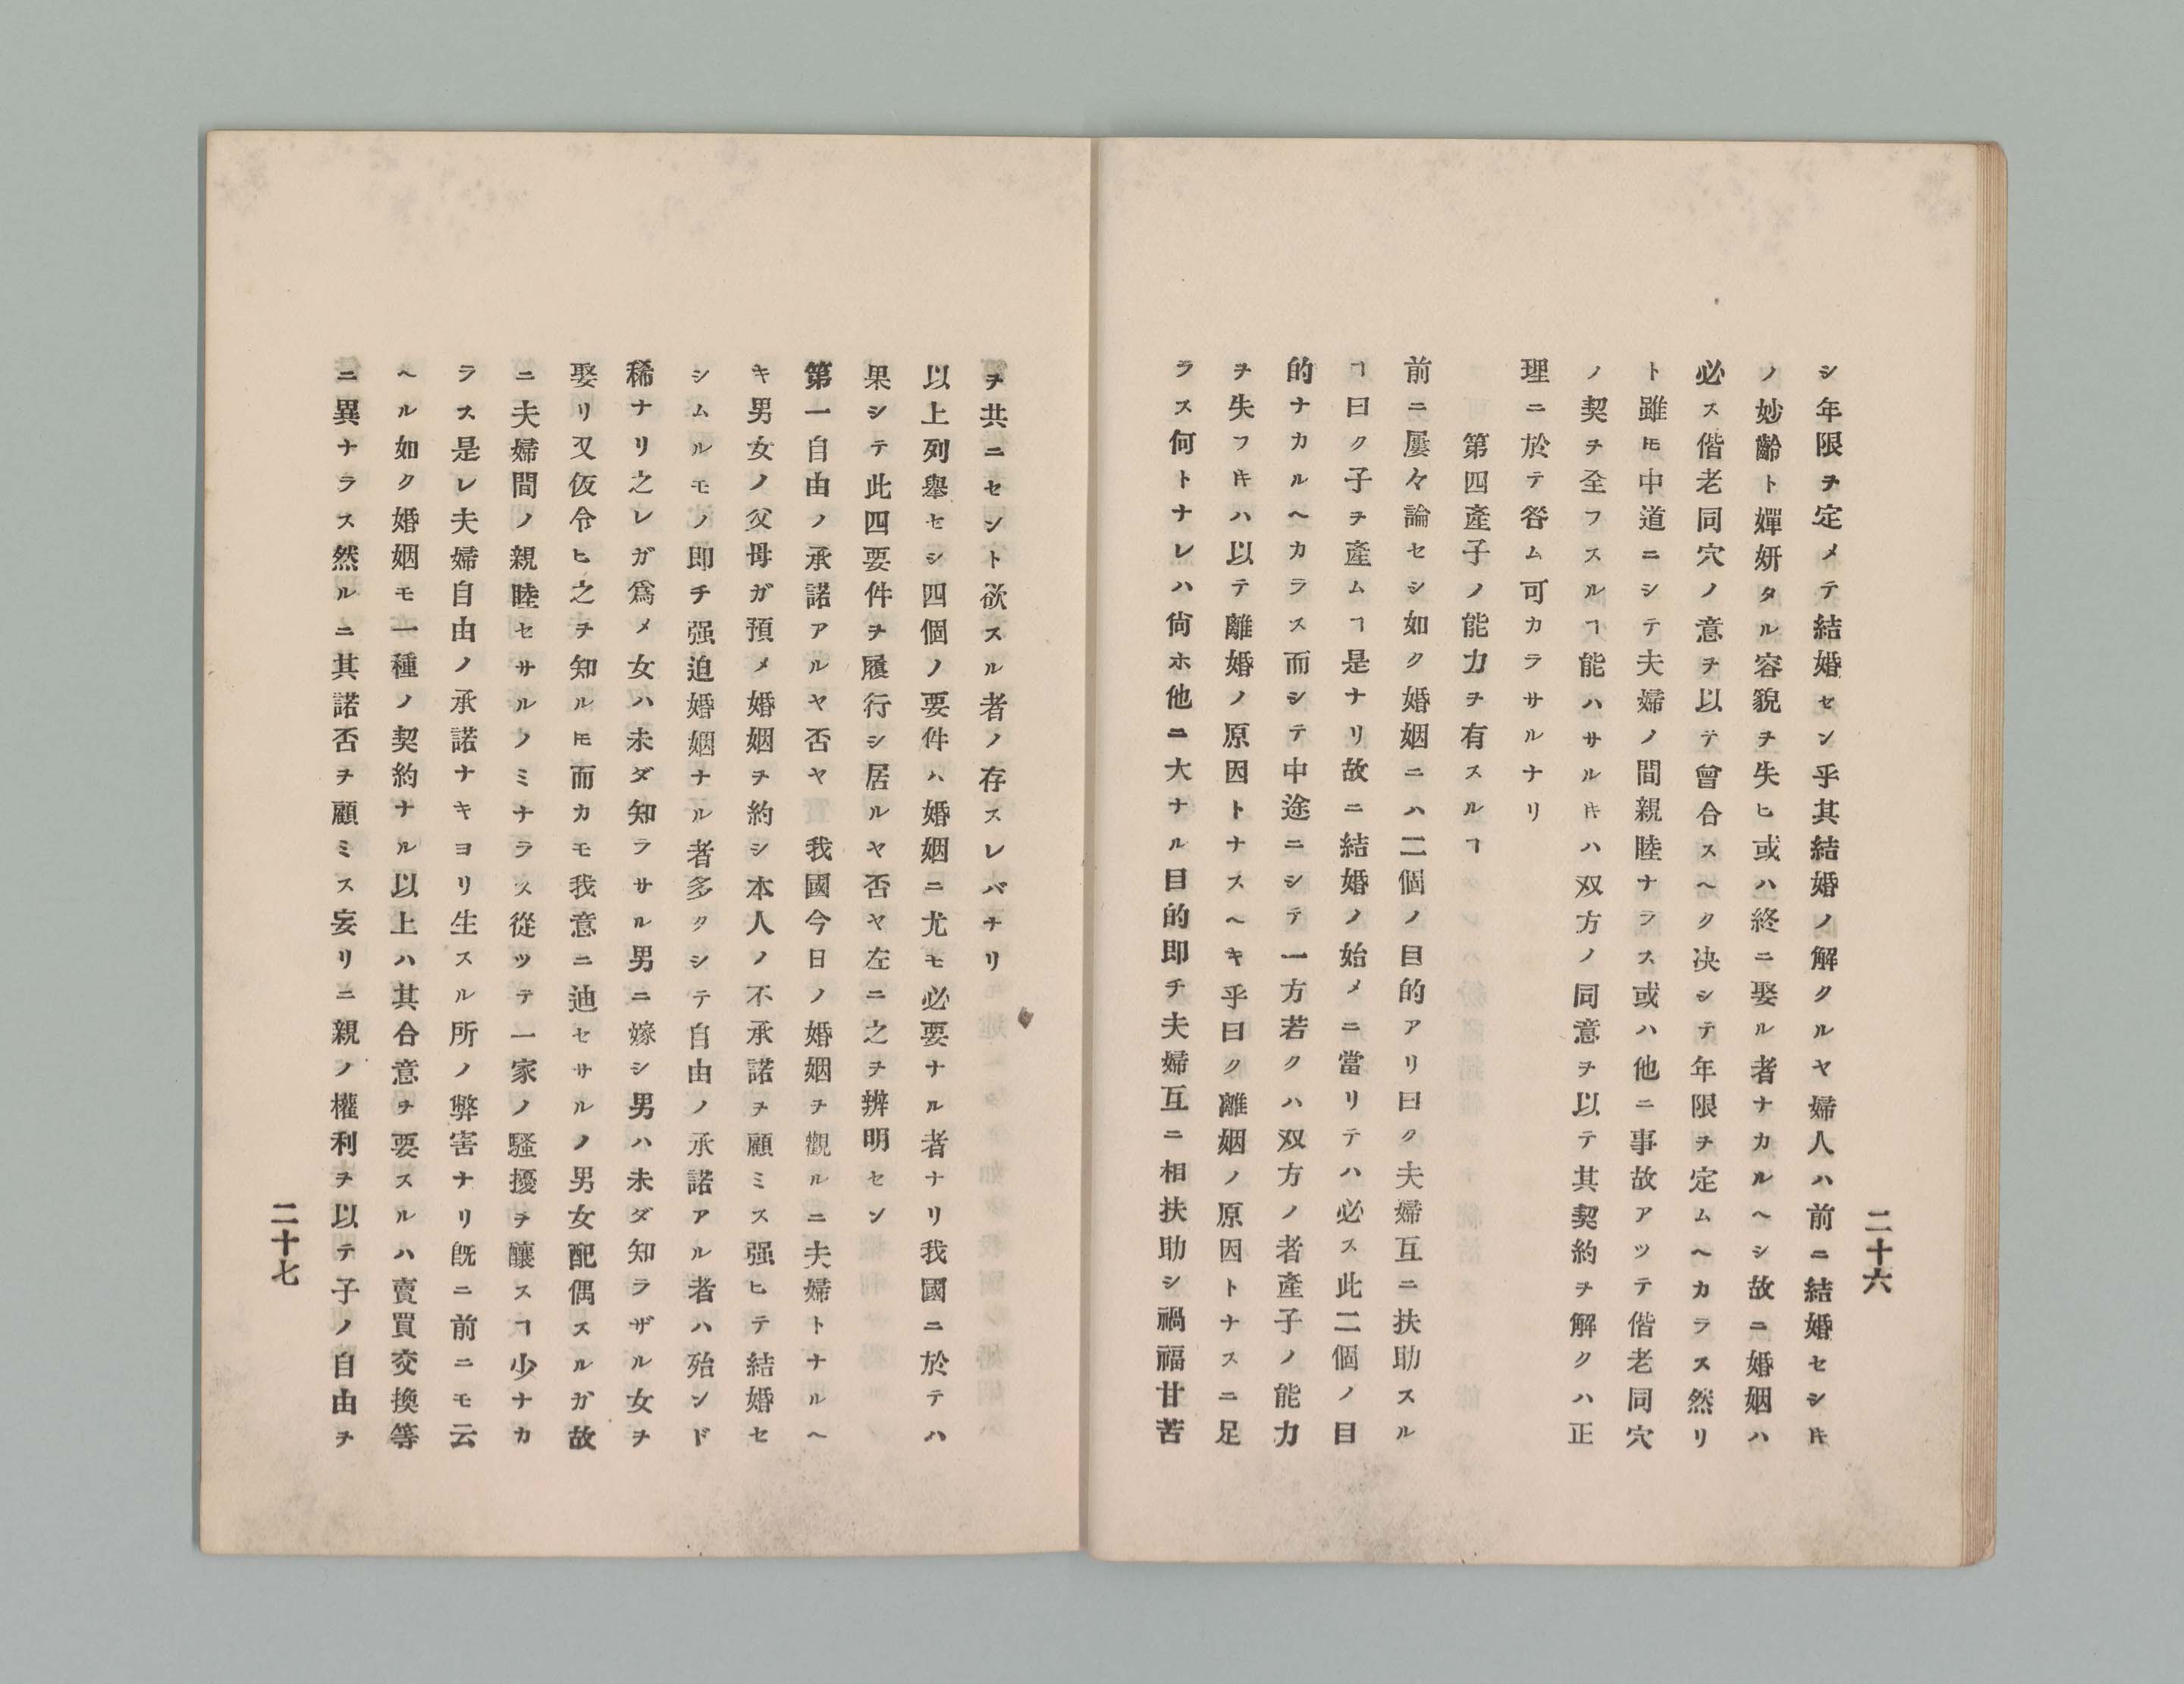 二十六
シ年限ヲ定メテ結婚セン乎其結婚ノ解クルヤ婦人ハ前ニ結婚セシヰ
ノ妙齡ト嬋妍タル容貌ヲ失ヒ或ハ終ニ娶ル者ナカルヘシ故ニ婚姻ハ
必ス偕老同穴ノ意ヲ以テ曾合スヘク决シテ年限ヲ定ムヘカラス然リ
ト雖𪜈中道ニシテ夫婦ノ間親睦ナラス或ハ他ニ事故アツテ偕老同穴
ノ契ヲ全フスルヿ能ハサルヰハ双方ノ同意ヲ以テ其契約ヲ解クハ正
理ニ於テ咎ム可カラサルナリ
第四產子ノ能力ヲ有スルヿ
前ニ屢々論セシ如ク婚姻ニハ二個ノ目的アリ曰ク夫婦互ニ扶助スル
ヿ曰ク子ヲ產ムヿ是ナリ故ニ結婚ノ始メニ當リテハ必ス此二個ノ目
的ナカルヘカラス而シテ中途ニシテ一方若クハ双方ノ者產子ノ能力
ヲ失フヰハ以テ離婚ノ原因トナスヘキ乎曰ク離姻ノ原因トナスニ足
ラス何トナレハ尙ホ他ニ大ナル目的即チ夫婦互ニ相扶助シ禍福甘苦
ヲ共ニセント欲スル者ノ存スレバナリ
以上列舉セシ四個ノ要件ハ婚姻ニ尤モ必要ナル者ナリ我國ニ於テハ
果シテ此四要件ヲ履行シ居ルヤ否ヤ左ニ之ヲ辨明セン
第一自由ノ承諾アルヤ否ヤ　我國今日ノ婚姻ヲ觀ルニ夫婦トナルヘ
キ男女ノ父母ガ預メ婚姻ヲ約シ本人ノ不承諾ヲ顧ミス强ヒテ結婚セ
シムルモノ即チ强迫婚姻ナル者多クシテ自由ノ承諾アル者ハ殆ンド
稀ナリ之レガ爲メ女ハ未ダ知ラサル男ニ嫁シ男ハ未ダ知ラザル女ヲ
娶リ又仮令ヒ之ヲ知ル𪜈而カモ我意ニ迪セサルノ男女配偶スルガ故
ニ夫婦間ノ親睦セサルノミナラス從ツテ一家ノ騷擾ヲ釀スヿ少ナカ
ラス是レ夫婦自由ノ承諾ナキヨリ生スル所ノ弊害ナリ既ニ前ニモ云
ヘル如ク婚姻モ一種ノ契約ナル以上ハ其合意ヲ要スルハ賣買交換等
ニ異ナラス然ルニ其諾否ヲ顧ミス妄リニ親ノ權利ヲ以テ子ノ自由ヲ
二十七